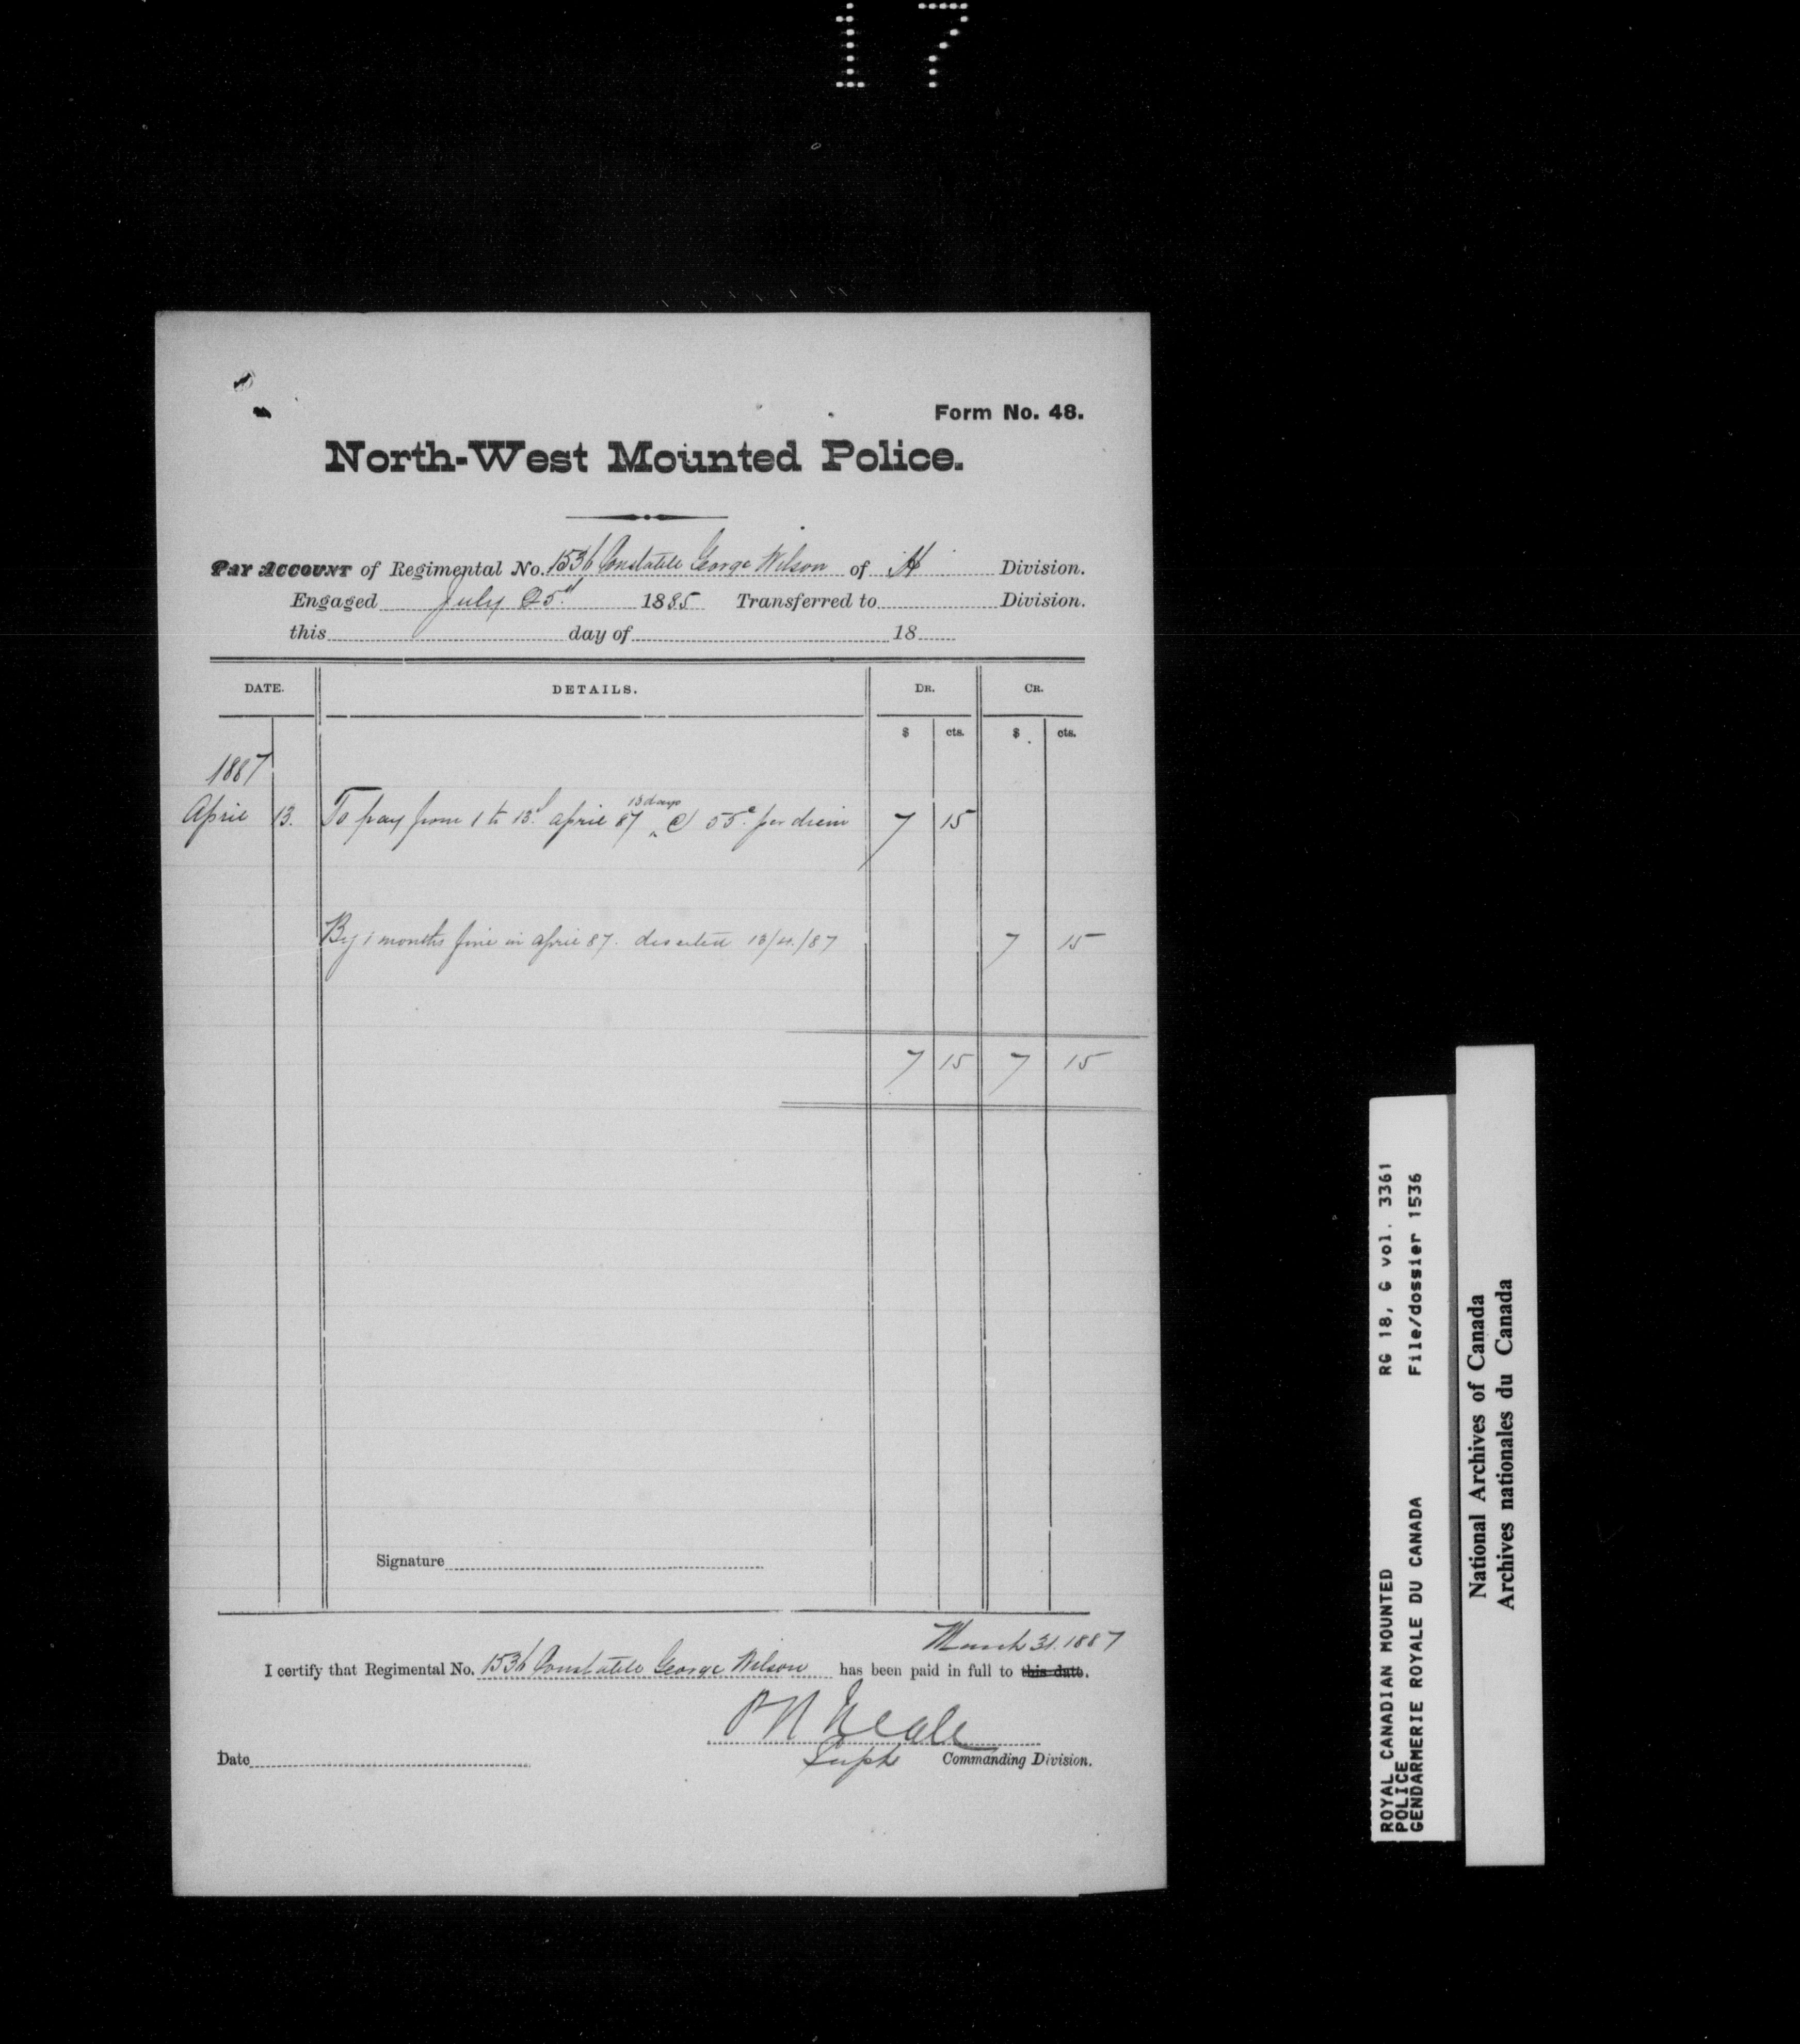 17
Form No. 48.
North-West Mounted Police.
Pay Account of Regimental No. 1536 Constable George Wilson of "H" Division.
Engaged July 25th 1885 Transferred to Division.
this day of 18
DATE. DETAILS. DR. CR.
$ cts. $ cts.
1887
April 13. To pay from 1 to 13th April 87 13 days @ 55c. per diem 7 15
By 1 months fine in April 87. deserted 13/4/87 7 15
7 15 7 15
Signature
March 31. 1887
I certify that Regimental No. 1536 Constable George Wilson has been paid in full to this date.
P R Neale
Supt Commanding Division.
Date
ROYAL CANADIAN MOUNTED RG 18, G vol. 3361
POLICE
GENDARMERIE ROYALE DU CANADA File/dossier 1536
National Archives of Canada
Archives nationales du Canada